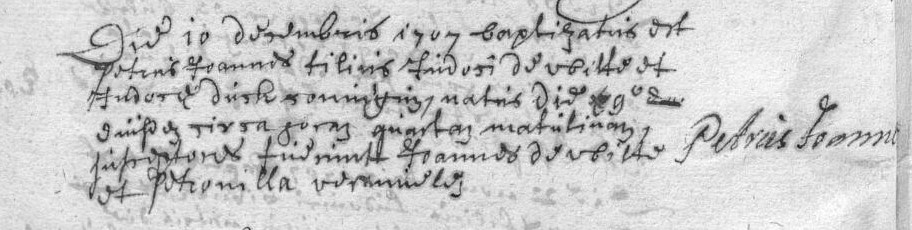 Die 10 decembris 1707 baptizatus est
Petrus Joannes filius Judoci de vbitte et
Judocæ duck coniugum, natus Die 9ª
eiusdem circa horam quartam matutinam,
susceptores fuerunt Joannes de vbitte Petrus Joanne
et Petronilla